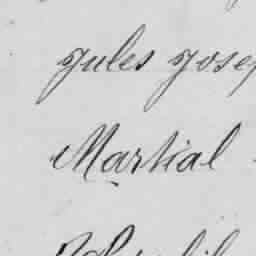 Jules Jose
Martial